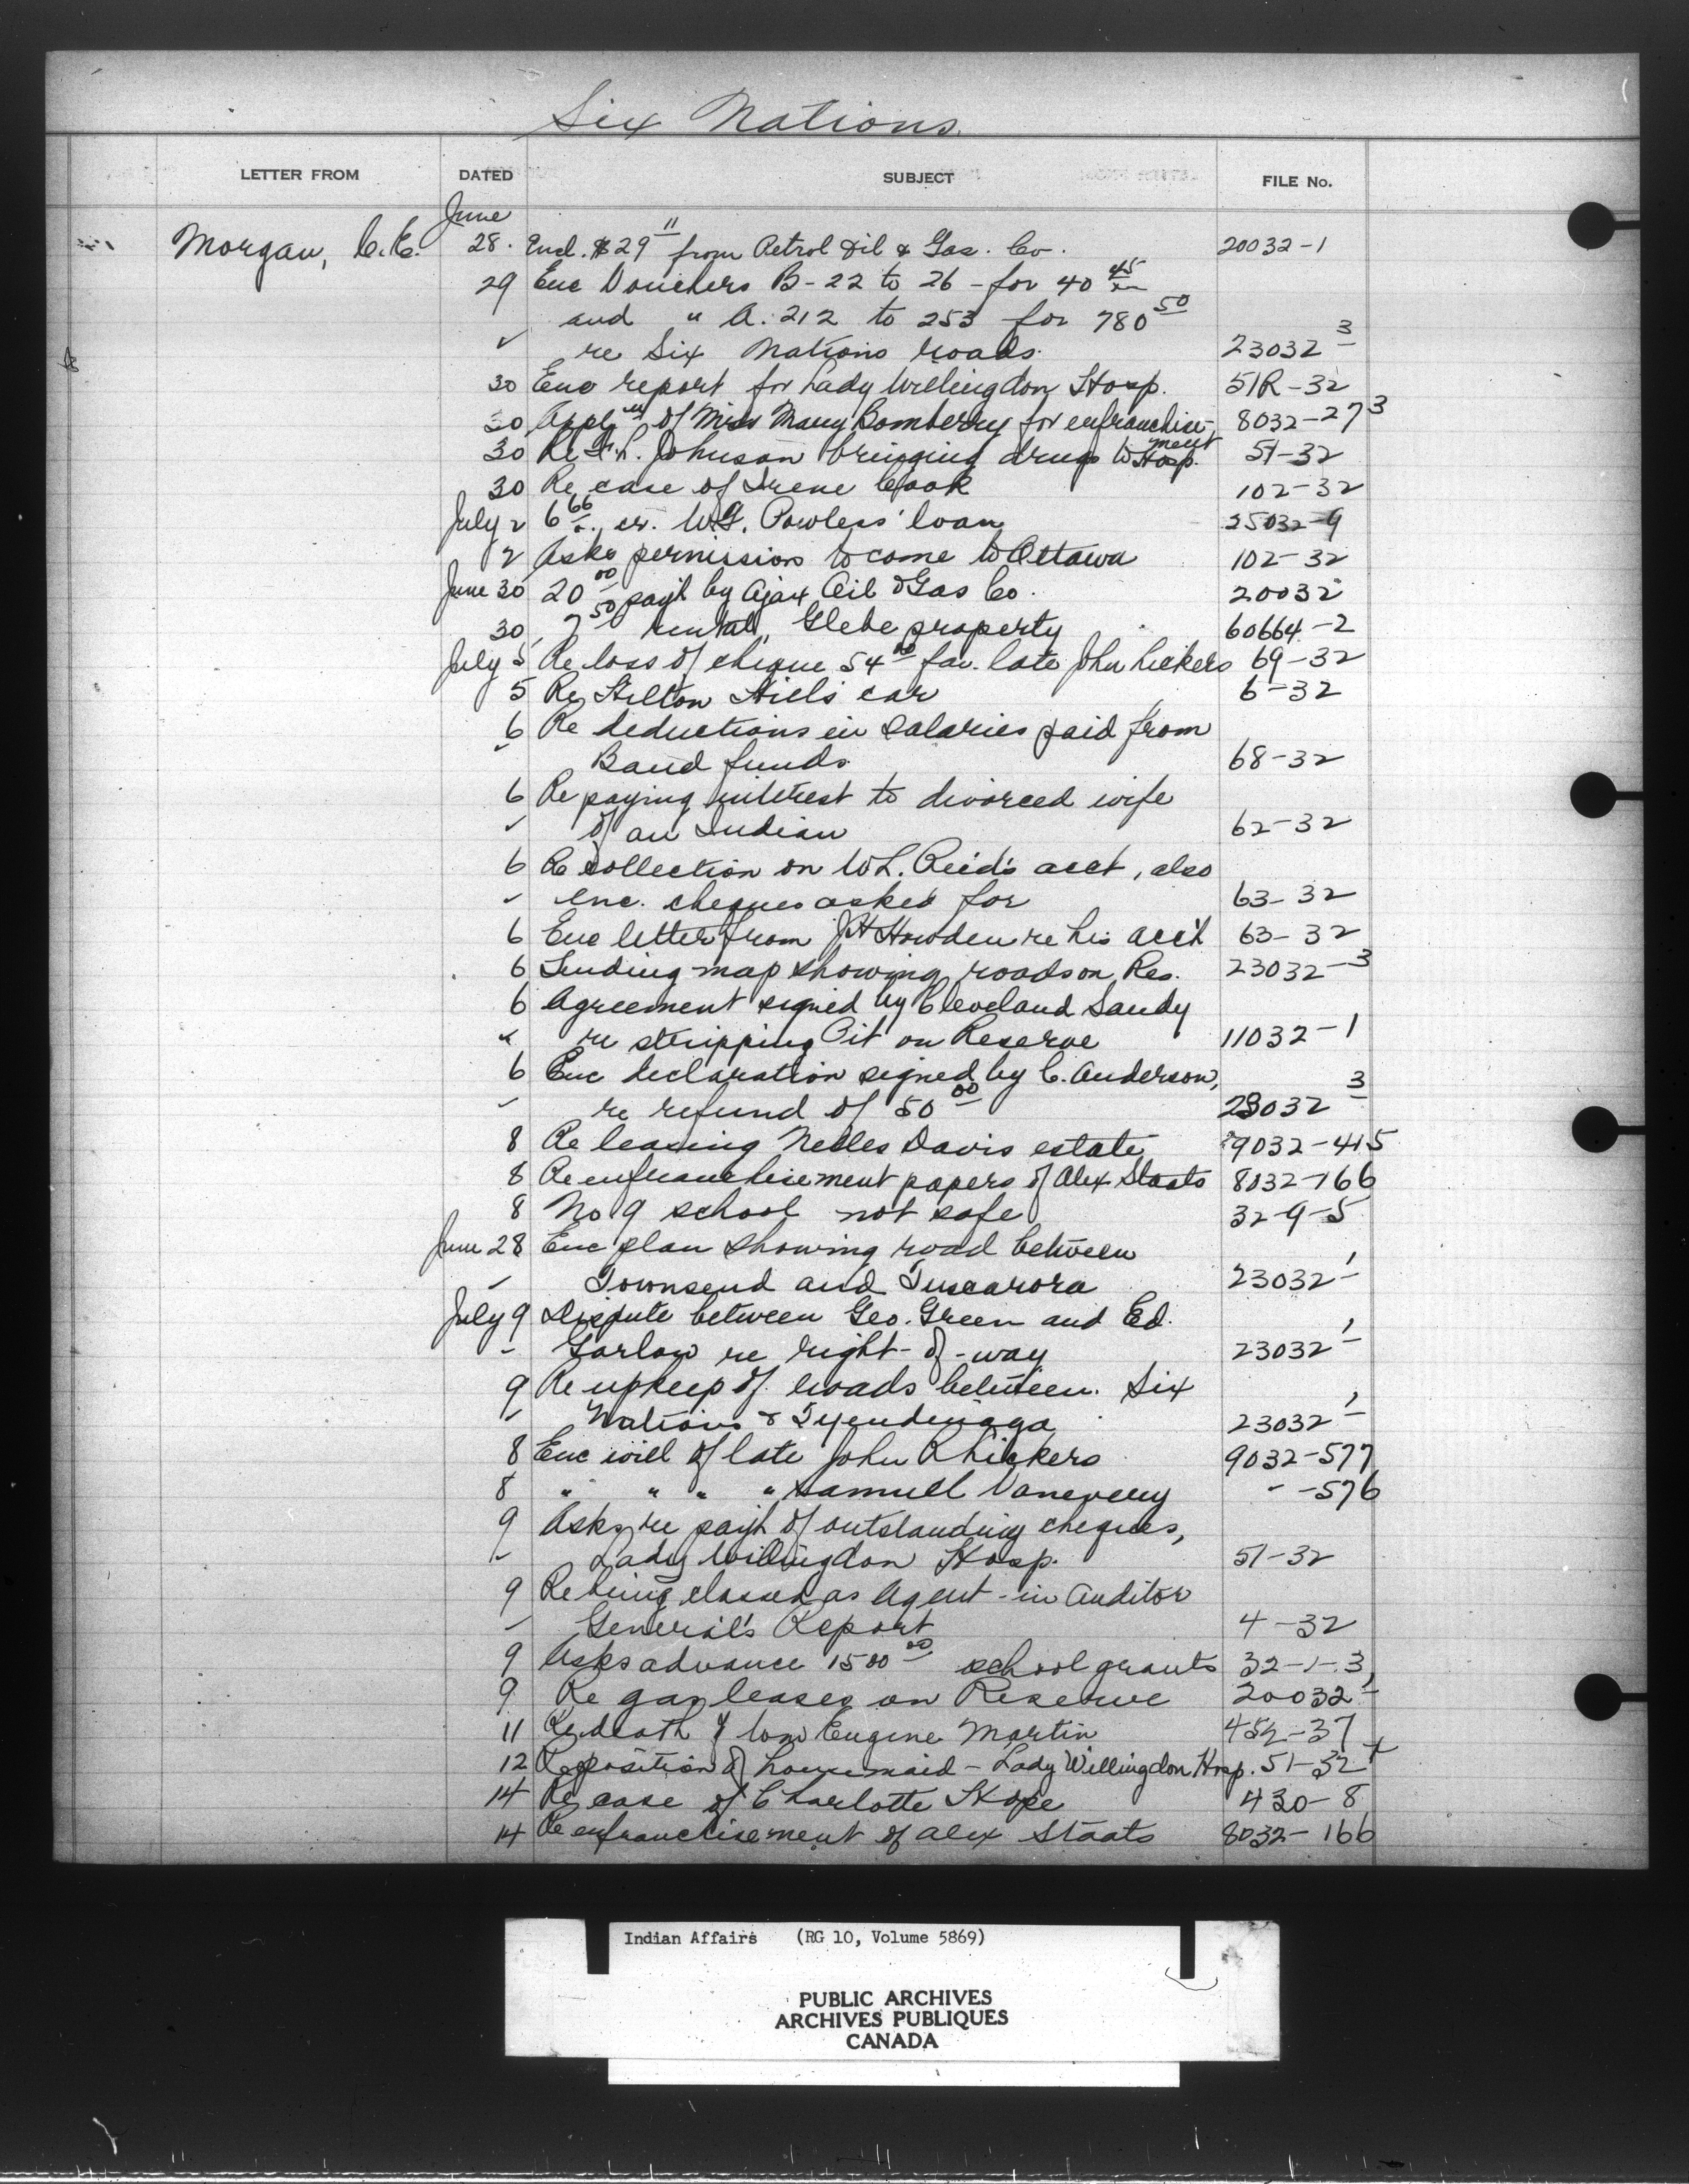 Six Nations.
LETTER FROM DATED SUBJECT FILE No.
June
Morgan, C.E. 28. Encl. $29 11 from Petrol Oil & Gas. Co. 20032-1
29 Enc Vouchers B-22 to 26 - for 40 45
and " A. 212 to 253 for 780 50
✓ re Six Nations roads. 23032-3
30 Enc report for Lady Willingdon Hosp. 51R-32
30 Appl'n of Miss Mary Bomberry for enfranchise- 8032-273
ment
30 Re F.L. Johnson bringing drugs to Hosp. 51-32
30 Re case of Irene Cook 102-32
July 2 6 66 cr. W.G. Powless' loan 25032-9
2 Asks permission to come to Ottawa 102-32
June 30 20 00 pay't by Ajax Oil & Gas Co. 20032
30 7 50 rental, Glebe property 60664-2
July 5 Re loss of cheque 54 00 fav. late John Lickers 69-32
5 Re Hilton Hill's car 6-32
6 Re deductions in salaries paid from
Band funds 68-32
6 Re paying interest to divorced wife
✓ of an Indian 62-32
6 Re collection on W.L. Reid's acct, also
✓ enc. cheques asked for 63-32
6 Enc letter from J.H. Howden re his acc't 63-32
6 Sending map showing roads on Res. 23032-3
6 Agreement signed by Cleveland Sandy
" re stripping Pit on Reserve 11032-1
6 Enc declaration signed by C. Anderson,
re refund of 50 00 23032-3
8 Re leasing Nelles Davis estate 9032-415
8 Re enfranchisement papers of Alex Staats 8032-166
8 No 9 school not safe 32-9-5
June 28 Enc plan showing road between
Townsend and Tuscarora 23032-1
July 9 Dispute between Geo. Green and Ed.
Garlow re right-of-way 23032-1
9 Re upkeep of roads between Six
Nations & Tyendinaga 23032-1
8 Enc will of late John R Lickers 9032-577
8 " " " " Samuel Vanevery - -576
9 Asks re pay't of outstanding cheques,
Lady Willingdon Hosp. 51-32
9 Re being classed as Agent - in Auditor
General's Report 4-32
9 Asks advance 1500 00 school grants 32-1-3
9 Re gas leases on Reserve 20032-1
11 Re death of Wm Eugene Martin 452-37
12 Re position of housemaid - Lady Willingdon Hosp. 51-32
14 Re case of Charlotte Hope 430-8
14 Re enfranchisement of Alex Staats 8032-166
Indian Affairs (RG 10, Volume 5869)
PUBLIC ARCHIVES
ARCHIVES PUBLIQUES
CANADA